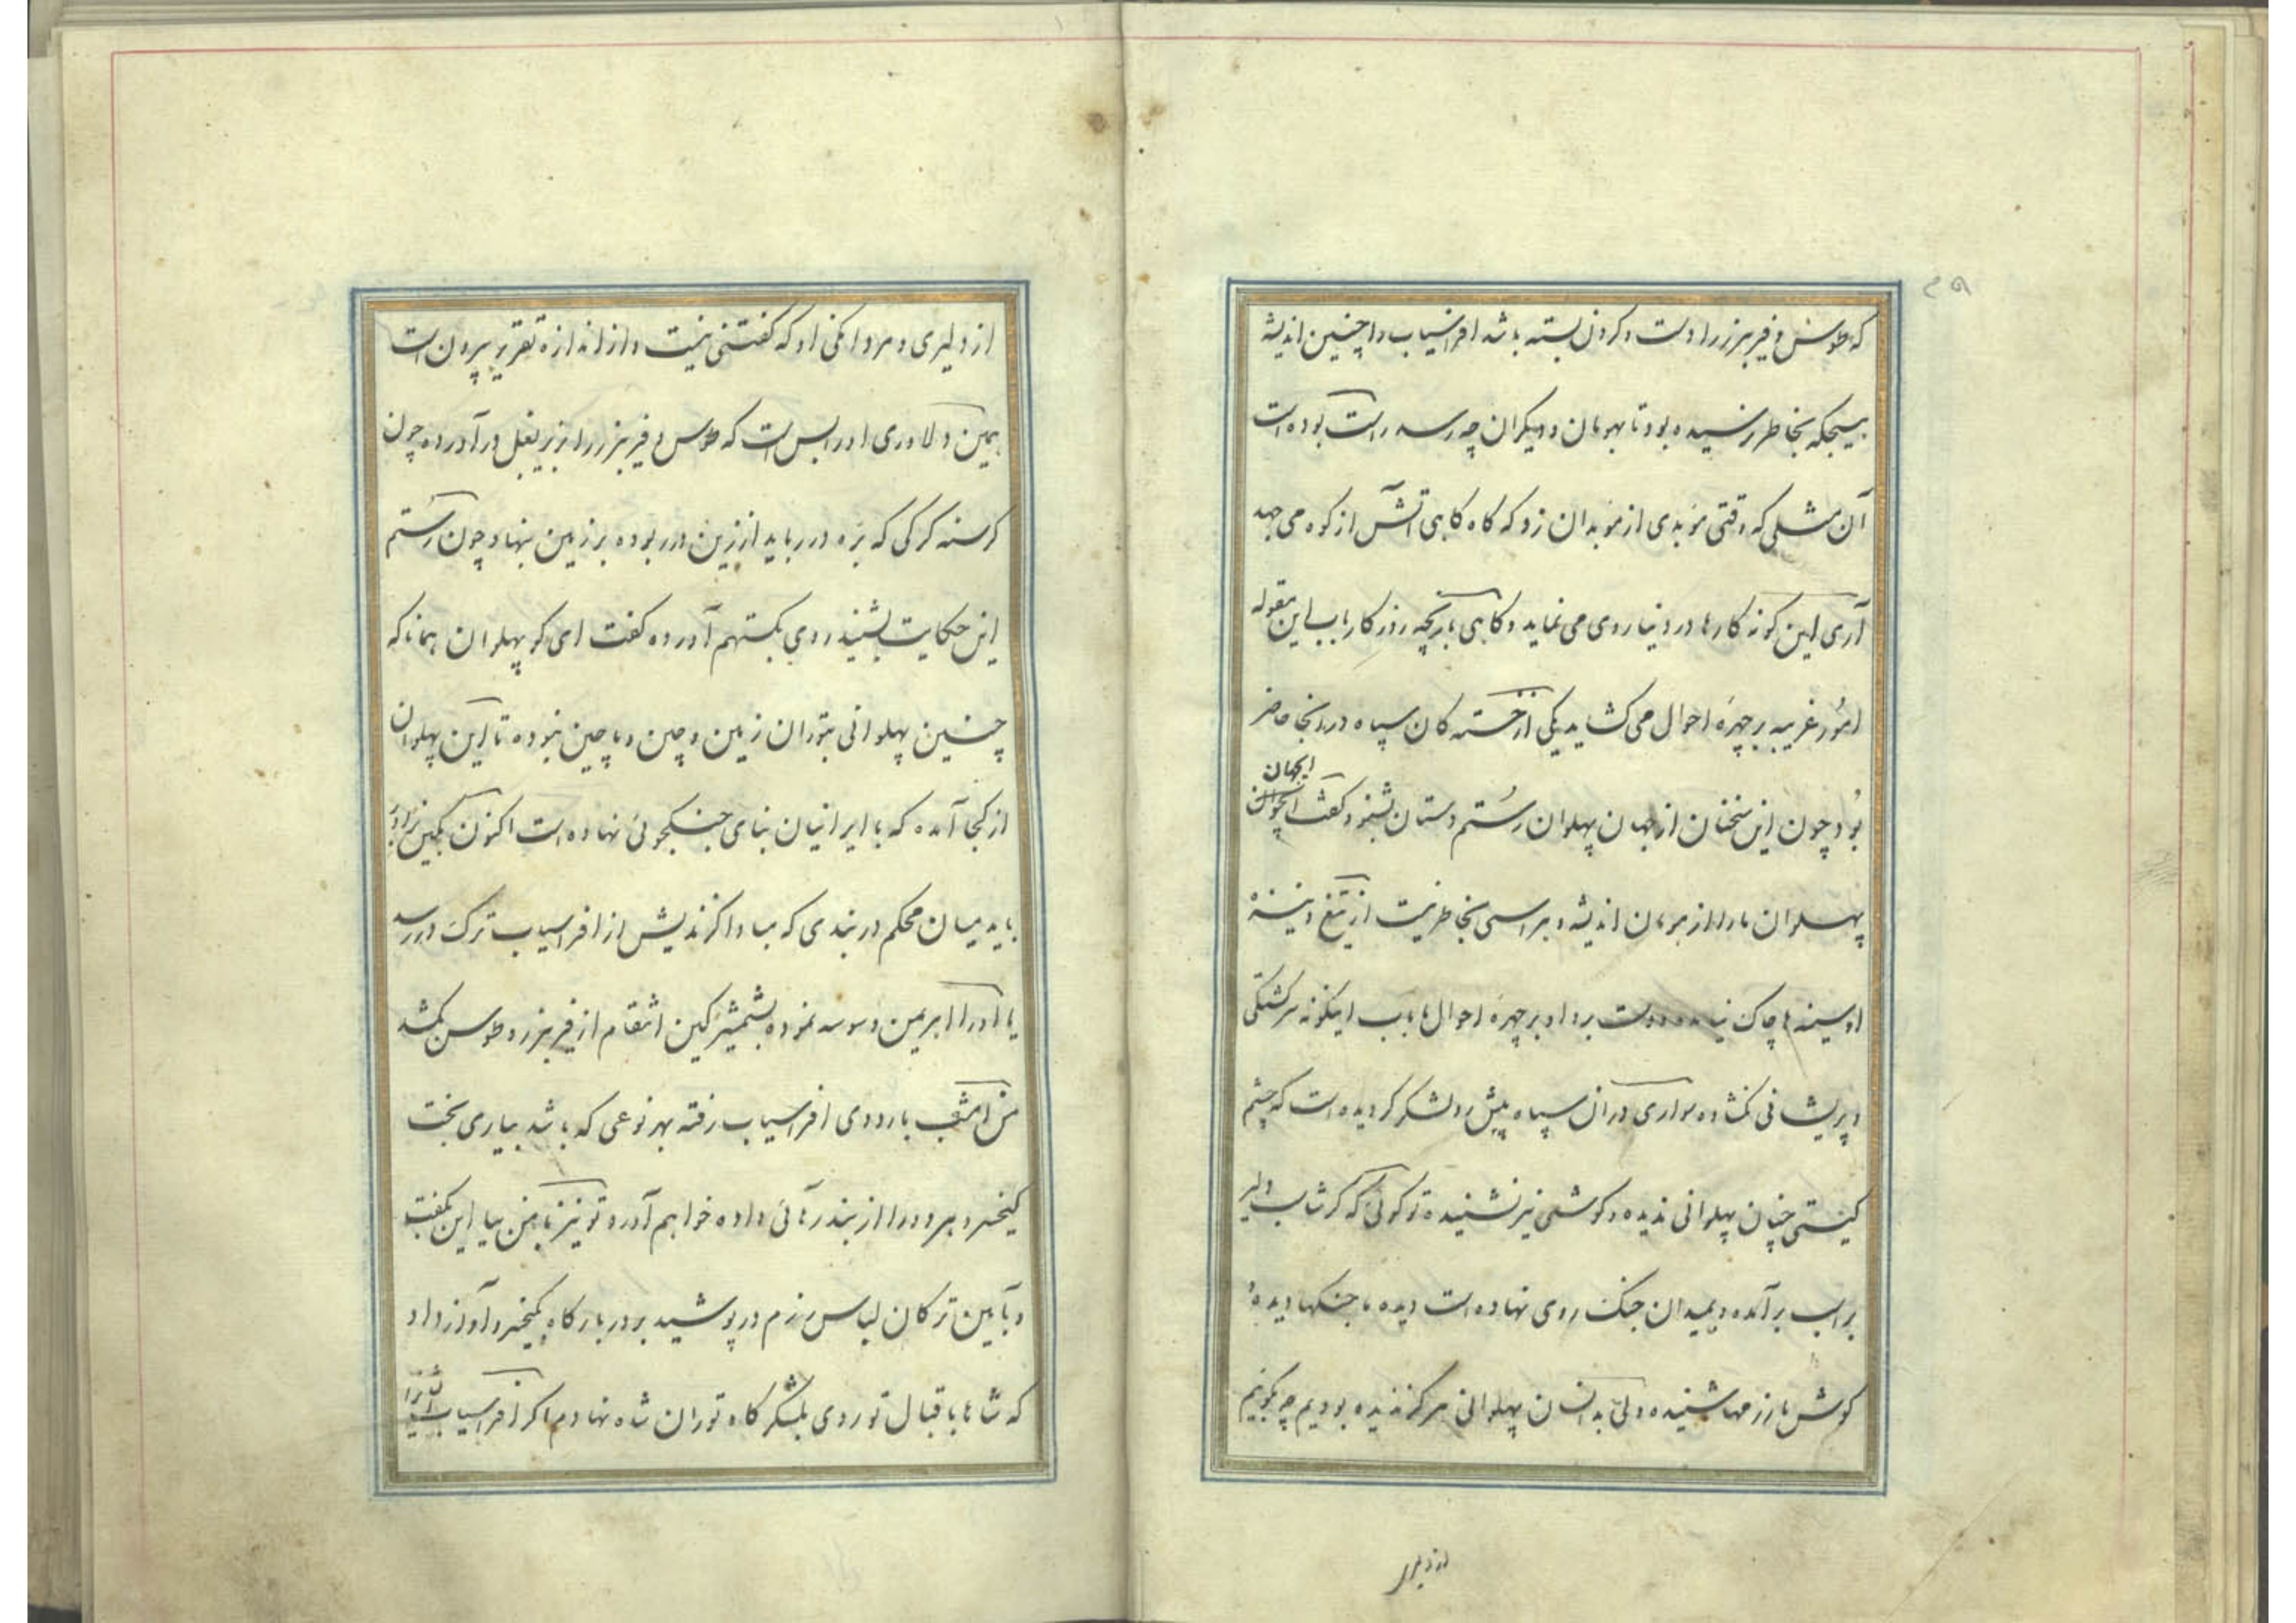 ۲۹
که طوس و فریبرز را دست و کردن بسته باشد افراسیاب را چنین اندیشه
بهیچکه بخاطر نرسیده بود تا بهومان و دیکران چه رسد راست بوده است
آن مثلی که وقتی موبدی از موبدان زد که کاه کاهی آتش از کوه می جهد
آری این کونه کارها در دنیا روی می نماید و کاهی بازیچه روزکار باب این مقوله
امور غریبه بر چهره احوال می کشاید یکی از خسته کان سپاه در انجا حاضر
بود چون این سخنان از جهان پهلوان رستم دستان بشنود کفت ایجهان
پهلوان ما را از هومان اندیشه و هراسی بخاطر نیست از تیغ و نیزه
او سینه ها چاک دست برد او بر چهره احوال ما باب اینکونه سرکشتکی
و پریشانی نکشاده سواری در ان سپاه پیش رو لشکر کردیده است که چشم
کیتی چنان پهلوانی ندیده و کوشی نیز نشنیده تو کوئی که کرشاسب دلیر
بر اسب بر آمده و بمیدان جنک روی نهاده است دیده ما جنکها دیده
کوش ما رزمها شنیده ولی بدانسان پهلوانی هرکز ندیده بودیم چه بکوئیم
از دلیر
از دلیری و مردانکی او که کفتنی نیست و از اندازه تقریر بیرون است
همین دلاوری او را بس است که طوس و فریبرز را از زیر بغل در آورده چون
کرسنه کرکی که بره در رباید از زین در ربوده بر زمین نهاد چون رستم
این حکایت بشنید روی بکستهم آورده کفت ای کو پهلوان همانا که
چنین پهلوانی بتوران زمین و چین و ماچین نبوده تا این پهلوان
از کجا آمده که با ایرانیان بنای جنکجوئی نهاده است اکنون بکین
باید میان محکم در بندی که مبادا کزندیش از افراسیاب ترک در رسد
یا او را اهریمن وسوسه نموده بشمشیر کین انتقام از فریبرز و طوس بکشد
من امشب باردوی افراسیاب رفته بهر نوعی که باشد بیاری بخت
کیخسرو هر دو را از بند رهائی داده خواهم آورد تو نیز با من بیا این بکفت
و بآیین ترکان لباس رزم در پوشید بر در بارکاه کیخسرو آواز داد
که شاها باقبال تو روی بلشکرکاه توران شاه نهادم اکر افراسیاب